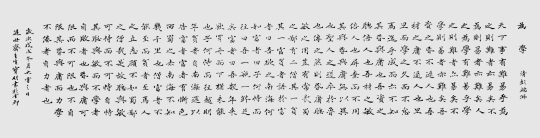 為學 清彭端淑
天下事有難易乎為
之則難者亦易矣不
為則易者亦難矣人
之為學有難易乎學
之則難者亦易矣不
學則易者亦難矣吾
資之昏不逮人也吾
材之庸不逮人也旦
旦而學之久而不怠
焉迄乎成而亦不知
其昏與庸也吾資之
聰倍人也吾材之敏
倍人也屏棄而不用
其與昏與庸無以異
也聖人之道卒於魯
也傳之然則昏庸聰
敏之用豈有常哉蜀
之鄙有二僧其一貧
其一富貧者語於富
者曰吾欲之南海何
如富者曰子何恃而
往曰吾一瓶一缽足
矣富者曰吾數年來
欲買舟而下猶未能
也子何恃而往越明
年貧者自南海還以
告富者富者有慚色
西蜀之去南海不知
幾千里也僧富者不
能至而貧者至焉人
之立志顧不如蜀鄙
之僧哉是故聰與敏
可恃而不可恃也自
恃其聰與敏而不學
者自敗者也昏與庸可
限而不可限也不自
限其昏與庸而力學
不倦者自力者也